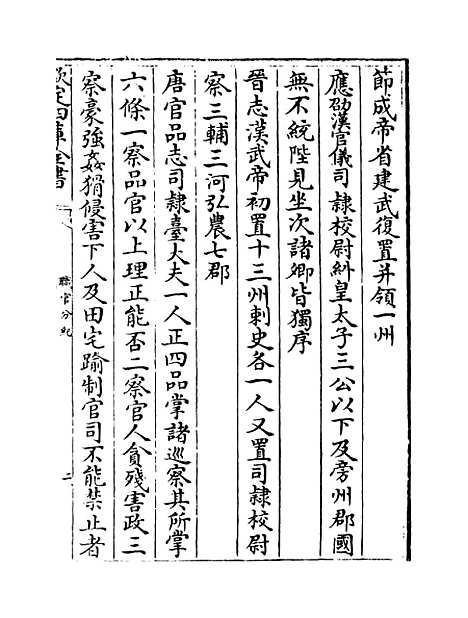 節成帝省建武復置并領一州
應劭漢官儀司隷校尉糾皇太子三公以下及旁州郡國
無不統陛見坐次諸卿皆獨席
晉志漢武帝初置十三州刺史各一人又置司隷校尉
察三輔三河弘農七郡
唐官品志司隷臺大夫一人正四品掌諸巡察其所掌
六條一察品官以上理正能否二察官人貪殘害政三
察豪強姦猾侵害下人及田宅踰制官司不能禁止者
欽定四庫全書
職官分紀
二